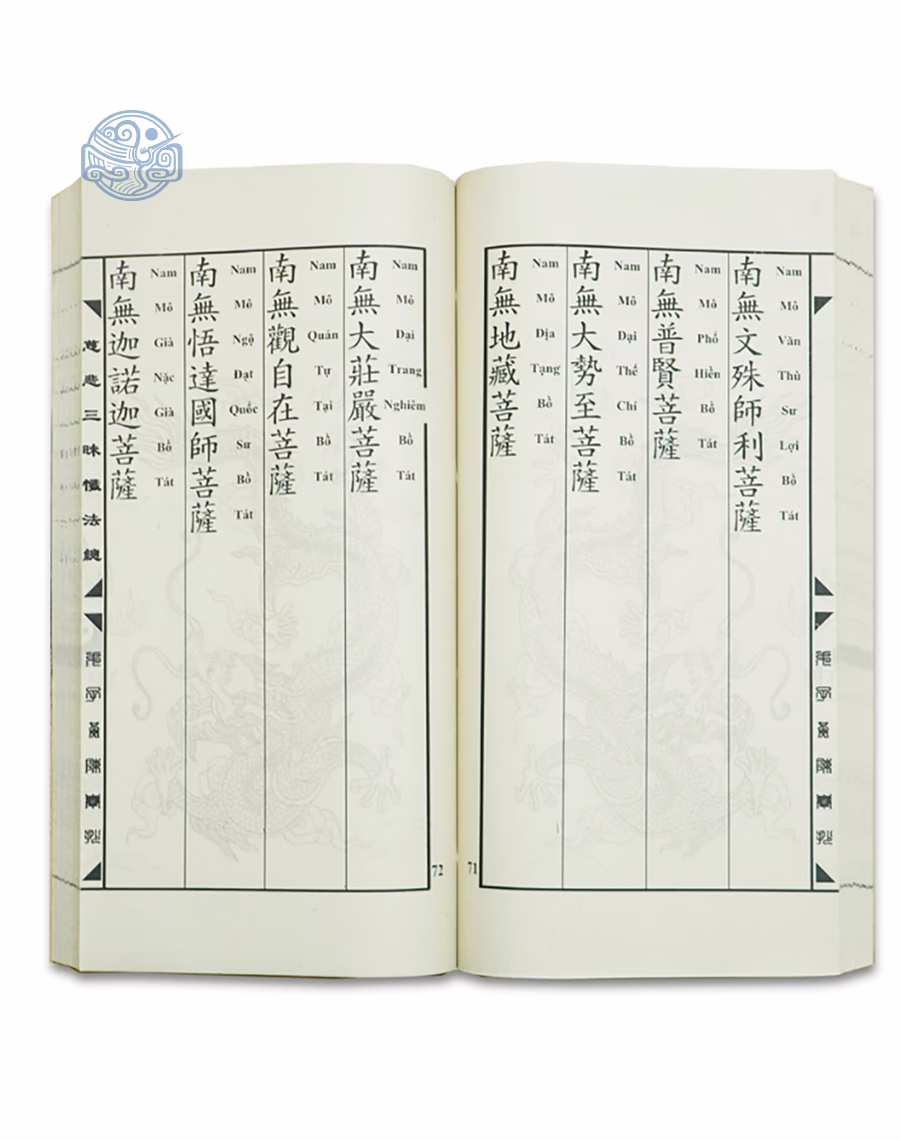 南無文殊師利菩薩
Nam Mô Văn Thù Sư Lợi Bồ Tát
南無普賢菩薩
Nam Mô Phổ Hiền Bồ Tát
南無大勢至菩薩
Nam Mô Đại Thế Chí Bồ Tát
南無地藏菩薩
Nam Mô Địa Tạng Bồ Tát
71
南無大莊嚴菩薩
Nam Mô Đại Trang Nghiêm Bồ Tát
南無觀自在菩薩
Nam Mô Quán Tự Tại Bồ Tát
南無悟達國師菩薩
Nam Mô Ngộ Đạt Quốc Sư Bồ Tát
南無迦諾迦菩薩
Nam Mô Già Nặc Già Bồ Tát
72
慈悲三昧懺法總